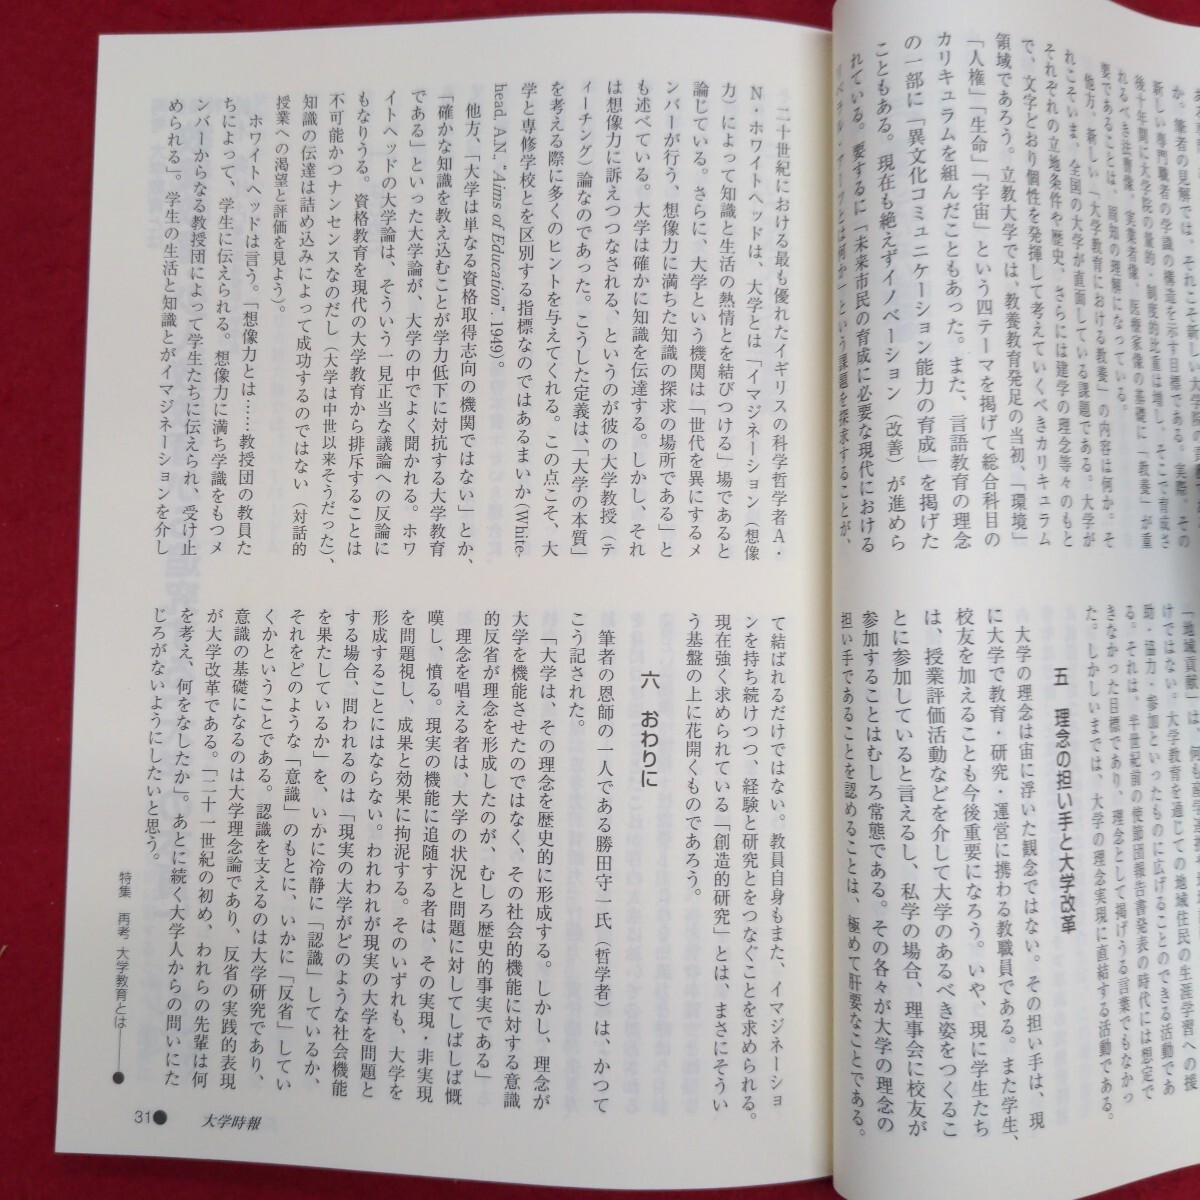 で、文字どおり個性を発揮して考えていくべきカリキュラム
領域であろう。立教大学では、教養教育発足の当初、「環境」
「人権」「生命」「宇宙」という四テーマを掲げて総合科目の
カリキュラムを組んだこともあった。また、言語教育の理念
の一部に「異文化コミュニケーション能力の育成」を掲げた
こともある。現在も絶えずイノベーション（改善）が進めら
れている。要するに「未来市民の育成に必要な現代における
リベラル・アーツとは何か」という課題を探求することが、
助・協力・参加といったものに広げることのできる活動であ
る。それは、半世紀前の使節団報告書発表の時代には想定で
きなかった目標であり、理念として掲げうる言葉でもなかっ
た。しかしいまでは、大学の理念実現に直結する活動である。
五　理念の担い手と大学改革
大学の理念は宙に浮いた観念ではない。その担い手は、現
に大学で教育・研究・運営に携わる教職員である。また学生、
校友を加えることも今後重要になろう。いや、現に学生たち
は、授業評価活動などを介して大学のあるべき姿をつくるこ
とに参加していると言えるし、私学の場合、理事会に校友が
参加することはむしろ常態である。その各々が大学の理念の
担い手であることを認めることは、極めて肝要なことである。
二十世紀における最も優れたイギリスの科学哲学者Ａ・
Ｎ・ホワイトヘッドは、大学とは「イマジネーション（想像
力）によって知識と生活の熱情とを結びつける」場であると
論じている。さらに、大学という機関は「世代を異にするメ
ンバーが行う、想像力に満ちた知識の探求の場所である」と
も述べている。大学は確かに知識を伝達する。しかし、それ
は想像力に訴えつつなされる、というのが彼の大学教授（テ
ィーチング）論なのであった。こうした定義は、「大学の本質」
を考える際に多くのヒントを与えてくれる。この点こそ、大
学と専修学校とを区別する指標なのではあるまいか(White-
head, AN., “Aims of Education”. 1949)。
他方、「大学は単なる資格取得志向の機関ではない」とか、
「確かな知識を教え込むことが学力低下に対抗する大学教育
である」といった大学論が、大学の中でよく聞かれる。ホワ
イトヘッドの大学論は、そういう一見正当な議論への反論に
もなりうる。資格教育を現代の大学教育から排斥することは
不可能かつナンセンスなのだし（大学は中世以来そうだった）、
知識の伝達は詰め込みによって成功するのではない（対話的
授業への渇望と評価を見よう）。
ホワイトヘッドは言う。「想像力とは……教授団の教員た
ちによって、学生に伝えられる。想像力に満ち学識をもつメ
ンバーからなる教授団によって学生たちに伝えられ、受け止
められる」。学生の生活と知識とがイマジネーションを介し
て結ばれるだけではない。教員自身もまた、イマジネーショ
ンを持ち続けつつ、経験と研究とをつなぐことを求められる。
現在強く求められている「創造的研究」とは、まさにそうい
う基盤の上に花開くものであろう。
六　おわりに
筆者の恩師の一人である勝田守一氏（哲学者）は、かつて
こう記された。
「大学は、その理念を歴史的に形成する。しかし、理念が
大学を機能させたのではなく、その社会的機能に対する意識
的反省が理念を形成したのが、むしろ歴史的事実である」
理念を唱える者は、大学の状況と問題に対してしばしば慨
嘆し、憤る。現実の機能に追随する者は、その実現・非実現
を問題視し、成果と効果に拘泥する。そのいずれも、大学を
形成することにはならない。われわれが現実の大学を問題と
する場合、問われるのは「現実の大学がどのような社会機能
を果たしているか」を、いかに冷静に「認識」しているか、
それをどのような「意識」のもとに、いかに「反省」してい
くかということである。認識を支えるのは大学研究であり、
意識の基礎になるのは大学理念論であり、反省の実践的表現
が大学改革である。「二十一世紀の初め、われらの先輩は何
を考え、何をなしたか」。あとに続く大学人からの問いにた
じろがないようにしたいと思う。
特集　再考　大学教育とは――●
31●　大学時報